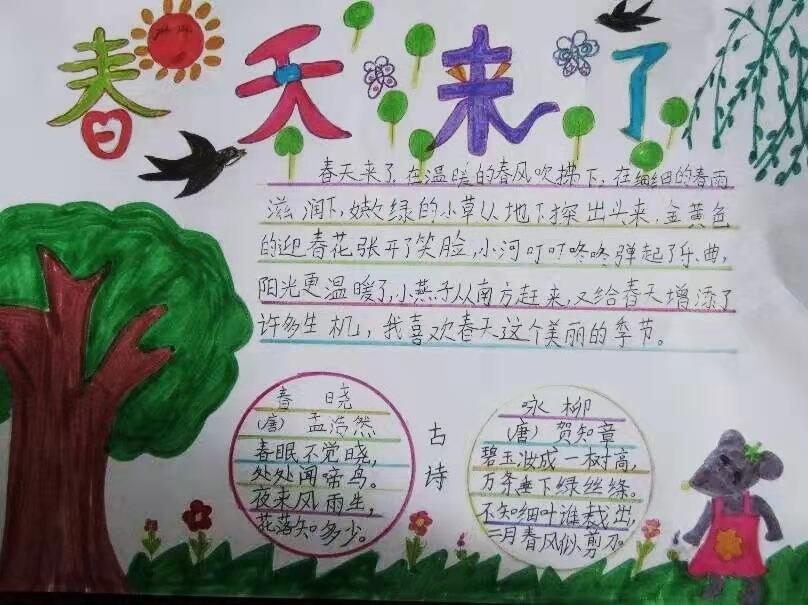 春天来了
春天来了,在温暖的春风吹拂下,在细细的春雨
滋润下,嫩绿的小草从地下探出头来,金黄色
的迎春花张开了笑脸,小河叮叮咚咚弹起了乐曲,
阳光更温暖了,小燕子从南方赶来,又给春天增添了
许多生机,我喜欢春天这个美丽的季节。
春晓
(唐)孟浩然
春眠不觉晓,
处处闻啼鸟。
夜来风雨生,
花落知多少。
古诗
咏柳
(唐)贺知章
碧玉妆成一树高,
万条垂下绿丝绦。
不知细叶谁裁出,
二月春风似剪刀。